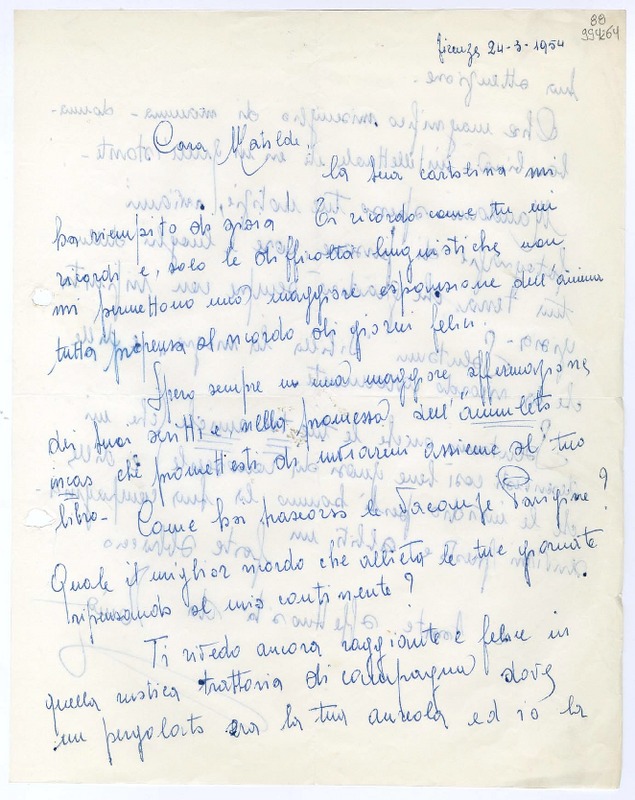 88
994264
Firenze 24-3-1954
Cara Matilde:
la tua cartolina mi
ha riempito di gioia Ti ricordo come tu mi
ricordi e, solo le difficoltà linguistiche non
mi permettono una maggiore espansione dell'anima
tutta propensa al ricordo di giorni felici.
Spero sempre in una maggiore affermazione
dei tuoi scritti e nella promessa dell'amuleto
incas che promettesti di inviarmi assieme al tuo
libro - Come hai passato le vacanze Parigine?
Quale il miglior ricordo che allieta le tue giornate
ripensando al mio continente?
Ti rivedo ancora raggiante e felice in
quella rustica trattoria di campagna dove
un pergolato era la tua aureola ed io la